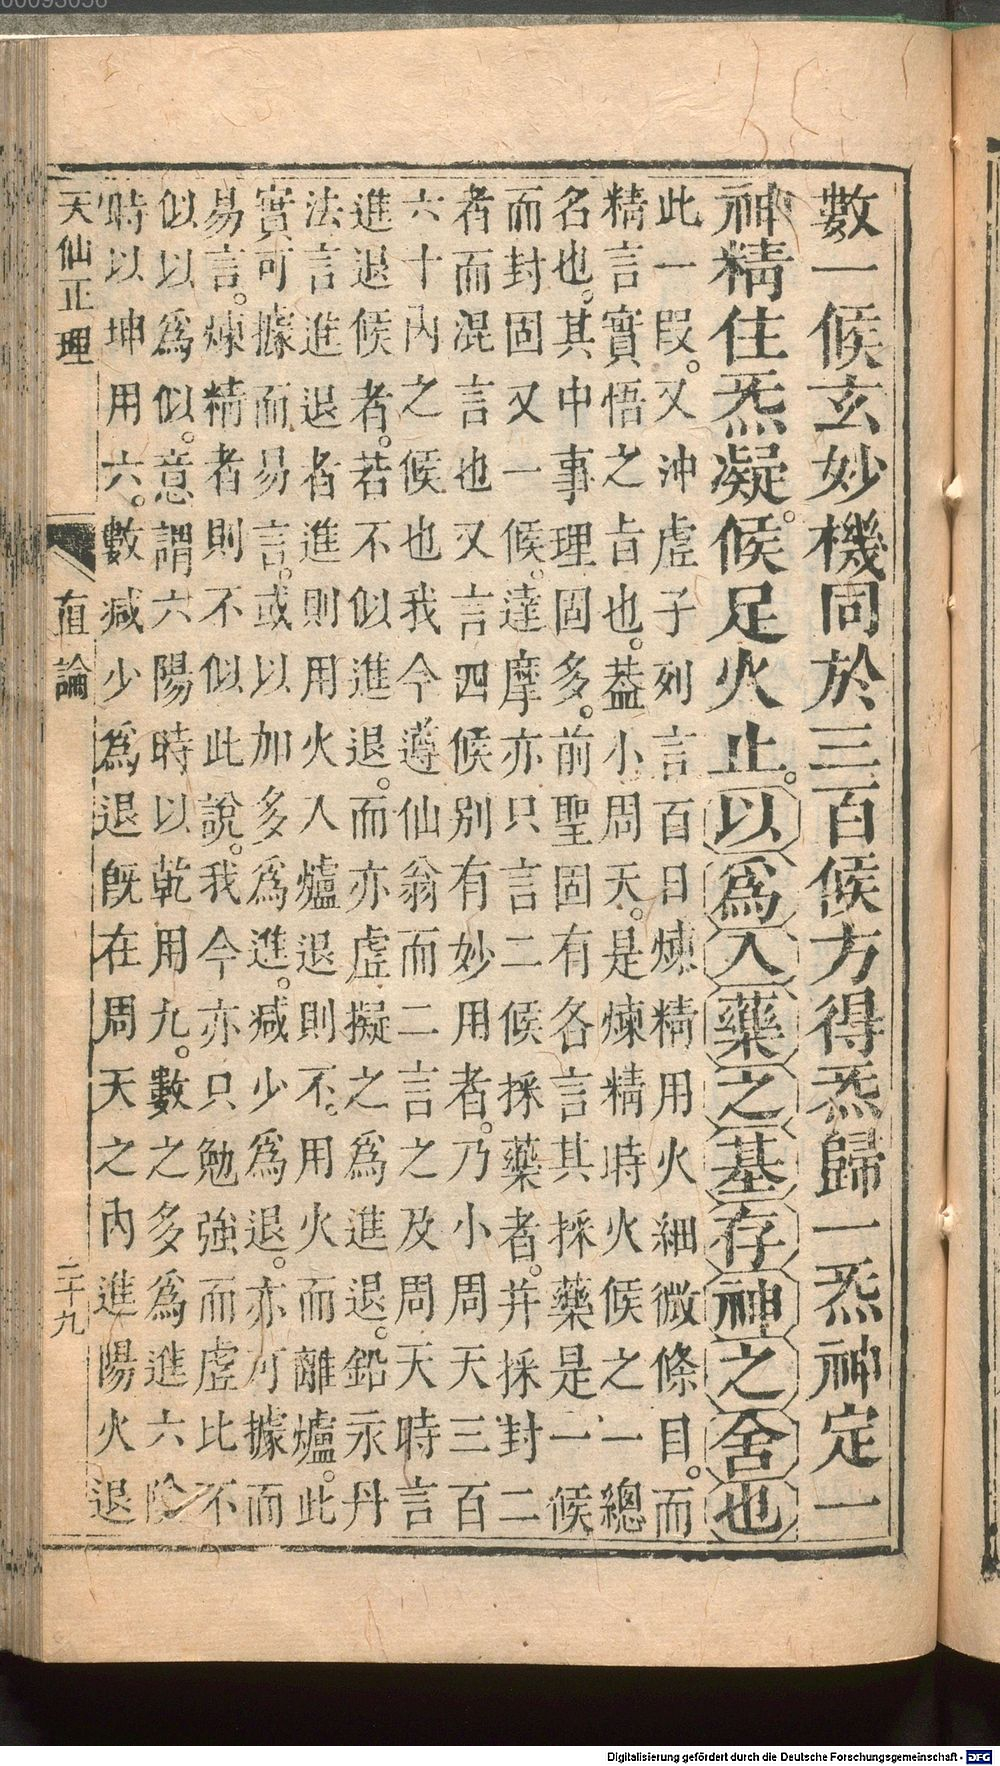 數一候玄妙機同於三百候方得炁歸一炁神定一
神精住炁凝。候足火止。以爲入藥之基存神之舍也
此一叚。又沖虛子列言百日煉精用火細微條目。而
精言實悟之旨也。葢小周天。是煉精時火候之一總
名也。其中事理固多。前聖固有各言其採藥是一候
而封固又一候。達摩亦只言二候採藥者。并採封二
者而混言也又言四候別有妙用者。乃小周天三百
六十內之候也我今遵仙翁而二言之及周天時言
進退候者。若不似進退。而亦虛擬之爲進退。鉛永丹
法言進退者進則用火入爐退則不。用火而離爐。此
實可據而易言。或以加多爲進。减少爲退。亦可據而
易言。煉精者則不似此說。我今亦只勉強而虛比不
似以爲似。意謂六陽時以乾用九。數之多爲進六陰
時以坤用六。數减少爲退旣在周天之內進陽火退
天仙正理 直論 二十九
00093058
Digitalisierung gefördert durch die Deutsche Forschungsgemeinschaft - DFG